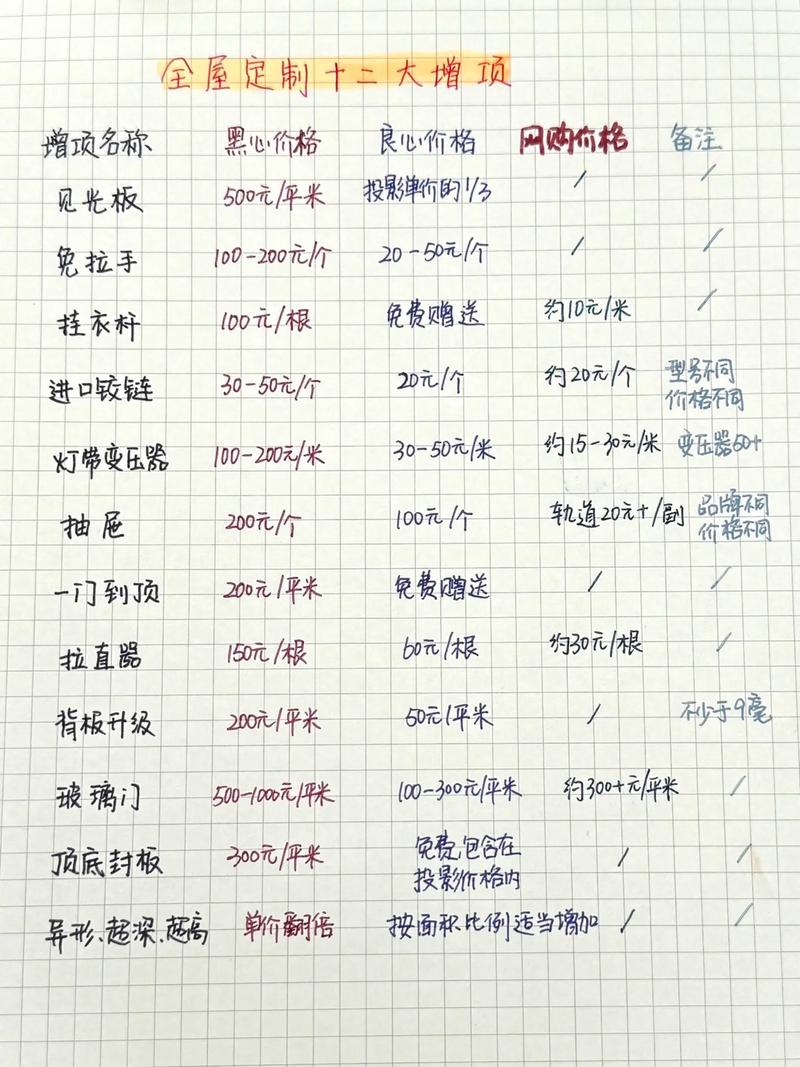 全屋定制十二大增项
增项名称 黑心价格 良心价格 网购价格 备注
见光板 500元/平米 投影单价的1/3 / /
免拉手 100-200元/个 20-50元/个 / /
挂衣杆 100元/根 免费赠送 约10元/米 /
进口铰链 30-50元/个 20元/个 约20元/个 型号不同
价格不同
灯带变压器 100-200元/米 30-50元/米 约15-30元/米 变压器60+
抽屉 200元/个 100元/个 轨道20元+/副 品牌不同
价格不同
一门到顶 200元/平米 免费赠送 / /
拉直器 150元/根 60元/根 约30元/根 /
背板升级 200元/平米 50元/平米 / 不少于9毫
玻璃门 500-1000元/平米 100-300元/平米 约300+元/平米 /
顶底封板 300元/平米 免费,包含在
投影价格内 / /
异形、超深、超高 单价翻倍 按面积比例适当增加 / /